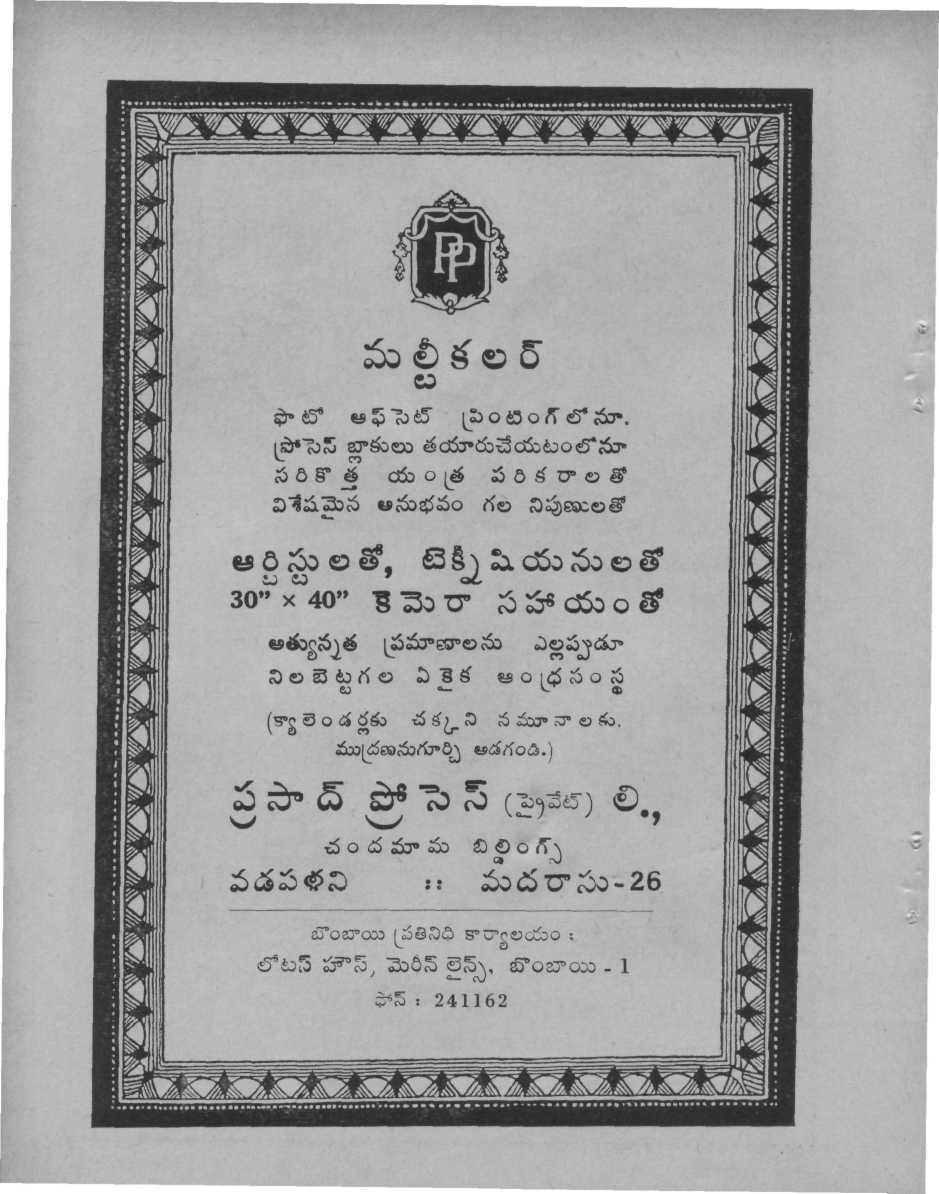 PP
మల్టీకలర్
ఫొటో ఆఫ్‌సెట్ ప్రింటింగ్‌లోనూ.
ప్రోసెస్ బ్లాకులు తయారుచేయటంలోనూ
సరికొత్త యంత్ర పరికరాలతో
విశేషమైన అనుభవం గల నిపుణులతో
ఆర్టిస్టులతో, టెక్నీషియనులతో
30” × 40” కెమెరా సహాయంతో
అత్యున్నత ప్రమాణాలను ఎల్లప్పుడూ
నిలబెట్టగల ఏకైక ఆంధ్రసంస్థ
(క్యాలెండర్లకు చక్కని నమూనాలకు.
ముద్రణనుగూర్చి అడగండి.)
ప్రసాద్ ప్రోసెస్ (ప్రైవేట్) లి.,
చందమామ బిల్డింగ్స్
వడపళని :: మదరాసు-26
బొంబాయి ప్రతినిధి కార్యాలయం :
లోటస్ హౌస్, మెరీన్ లైన్స్, బొంబాయి - 1
ఫోన్ : 241162